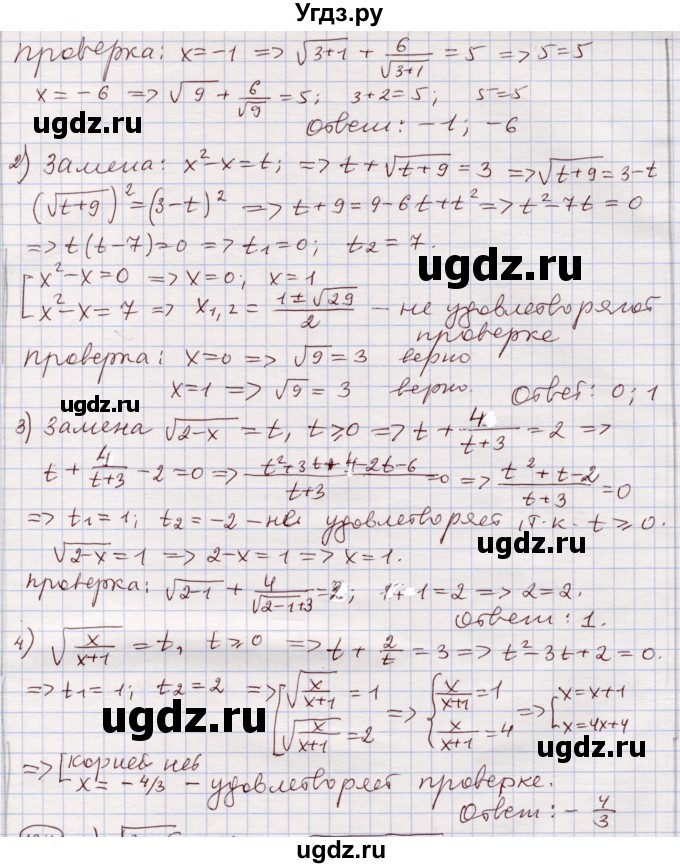 Угдз.ру
проверка: x=-1 => √(3+1) + 6/√(3+1) = 5 => 5=5
x=-6 => √9 + 6/√9 = 5; 3+2=5; 5=5
ugdz.ru ugdz.ru
Ответ: -1; -6
2) Замена: x²-x=t; => t+√(t+9)=3 => √(t+9)=3-t
(√(t+9))²=(3-t)² => t+9=9-6t+t² => t²-7t=0
=> t(t-7)=0 => t₁=0; t₂=7.
ugdz.ru
[x²-x=0 => x=0; x=1
x²-x=7 => x₁,₂ = (1±√29)/2 - не удовлетворяют
проверке
проверка: x=0 => √9=3 верно
x=1 => √9=3 верно. Ответ: 0; 1
ugdz.ru ugdz.ru
3) Замена √(2-x)=t, t≥0 => t + 4/(t+3) = 2 =>
t + 4/(t+3) - 2=0 => (t²+3t+4-2t-6)/(t+3) =0 => (t²+t-2)/(t+3) =0
=> t₁=1; t₂=-2 - не удовлетворяет, т.к. t≥0.
ugdz.ru
√(2-x)=1 => 2-x=1 => x=1.
проверка: √(2-1) + 4/(√(2-1)+3) =2; 1+1=2 => 2=2.
Ответ: 1.
ugdz.ru ugdz.ru
4) √(x/(x+1)) = t, t≥0 => t + 2/t = 3 => t²-3t+2=0.
=> t₁=1; t₂=2 => [√(x/(x+1)) = 1 => {x/(x+1) = 1 => [x=x+1
√(x/(x+1)) = 2 x/(x+1) = 4 x=4x+4
ugdz.ru
=> [корней нет
x=-4/3 - удовлетворяет проверке.
Ответ: -4/3
ugdz.ru ugdz.ru